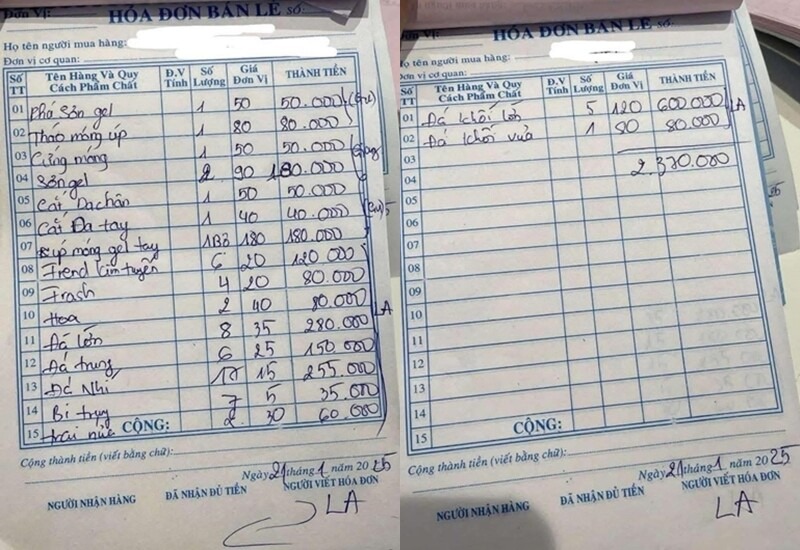 Đơn Vị: HÓA ĐƠN BÁN LẺ Số:
Họ tên người mua hàng:
Đơn vị cơ quan:
Số TT Tên Hàng Và Quy Cách Phẩm Chất Đ.V Tính Số Lượng Giá Đơn Vị THÀNH TIỀN
01 Phá Sơn gel 1 50 50.000
02 Tháo móng úp 1 80 80.000
03 Cứng móng 1 50 50.000
04 Sơn gel 2 90 180.000
05 Cắt Da chân 1 50 50.000
06 Cắt Da tay 1 40 40.000
07 úp móng gel tay 1Bộ 180 180.000
08 Trend kim tuyến 6 20 120.000
09 Trash 4 20 80.000
10 Hoa 2 40 80.000
11 Đá lớn 8 35 280.000
12 Đá trung 6 25 150.000
13 Đá Nhí 17 15 255.000
14 Bi trụ 7 5 35.000
15 trái 2 30 60.000
LA
CỘNG:
Cộng thành tiền (viết bằng chữ):
Ngày 21 tháng 1 năm 2025
NGƯỜI NHẬN HÀNG ĐÃ NHẬN ĐỦ TIỀN NGƯỜI VIẾT HÓA ĐƠN
LA
HÓA ĐƠN BÁN LẺ Số:
Họ tên người mua hàng:
Đơn vị cơ quan:
Số TT Tên Hàng Và Quy Cách Phẩm Chất Đ.V Tính Số Lượng Giá Đơn Vị THÀNH TIỀN
01 Đá khối lớn 5 120 600.000 LA
02 Đá khối vừa 1 80 80.000
03 2.370.000
04
05
06
07
08
09
10
11
12
13
14
15
CỘNG:
Cộng thành tiền (viết bằng chữ):
Ngày 21 tháng 1 năm 2025
NGƯỜI NHẬN HÀNG ĐÃ NHẬN ĐỦ TIỀN NGƯỜI VIẾT HÓA ĐƠN
LA